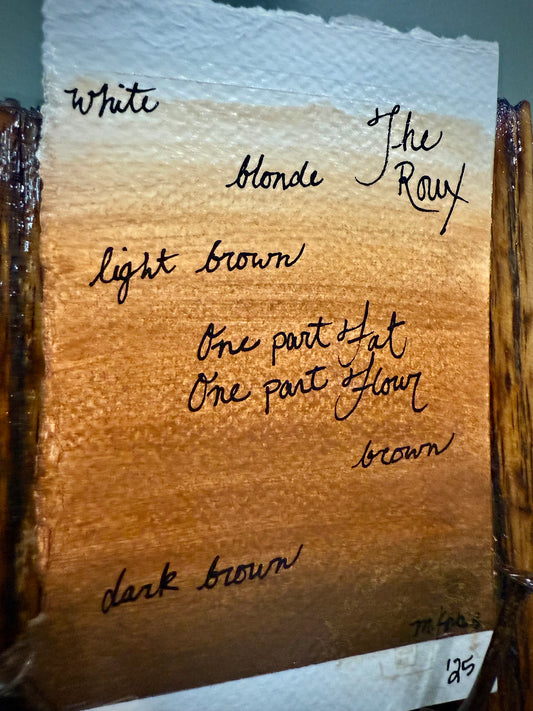 White
The
Roux
blonde
light brown
One part Fat
One part Flour
brown
dark brown
'25